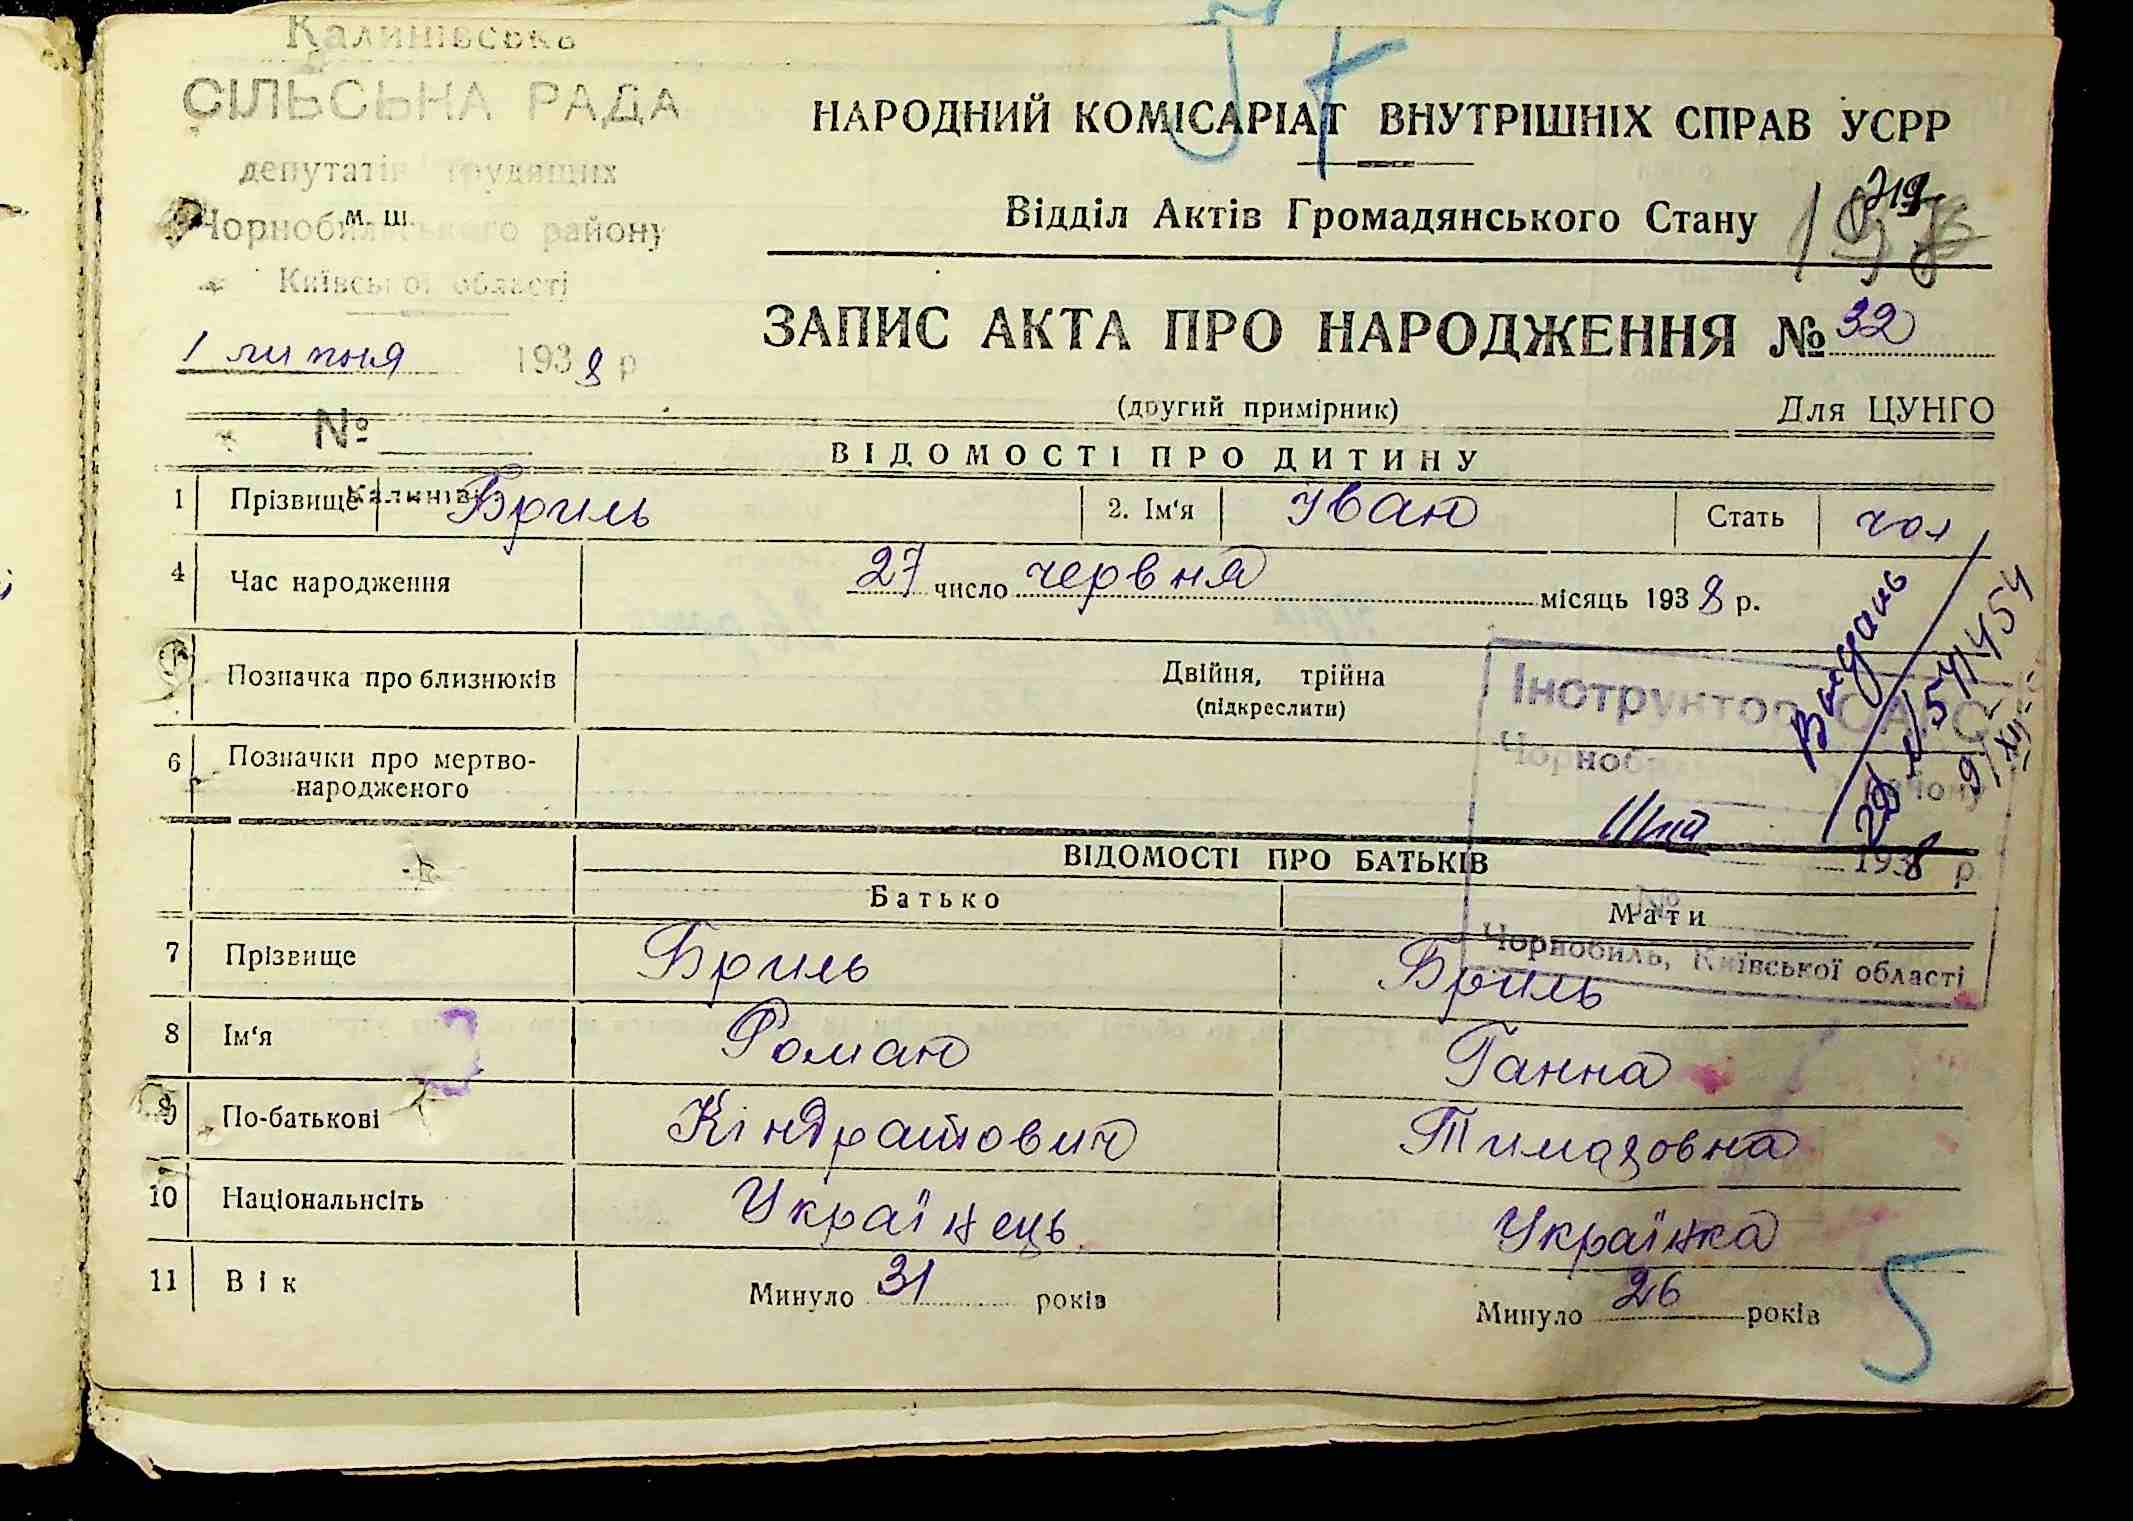 Калинівська
СІЛЬСЬКА РАДА
депутатів трудящих
м. ш.
Чорнобильського району
Київської області
1 липня 1938 р
№
Калинівк
НАРОДНИЙ КОМІСАРІАТ ВНУТРІШНІХ СПРАВ УСРР
Відділ Актів Громадянського Стану
ЗАПИС АКТА ПРО НАРОДЖЕННЯ № 32
(другий примірник) Для ЦУНГО
ВІДОМОСТІ ПРО ДИТИНУ
1 Прізвище Бриль 2. Ім'я Іван Стать чол
4 Час народження 27 число червня місяць 1938 р.
Позначка про близнюків Двійня, трійна
(підкреслити)
6 Позначки про мертво-
народженого
Інструктор ОАГС
Чорнобильського району
1938 р
№
Чорнобиль, Київської області
ВІДОМОСТІ ПРО БАТЬКІВ
Батько Мати
7 Прізвище Бриль Бриль
8 Ім'я Роман Ганна
9 По-батькові Кіндратович Тимозовна
10 Національнсіть Українець Українка
11 Вік Минуло 31 років Минуло 26 років
5